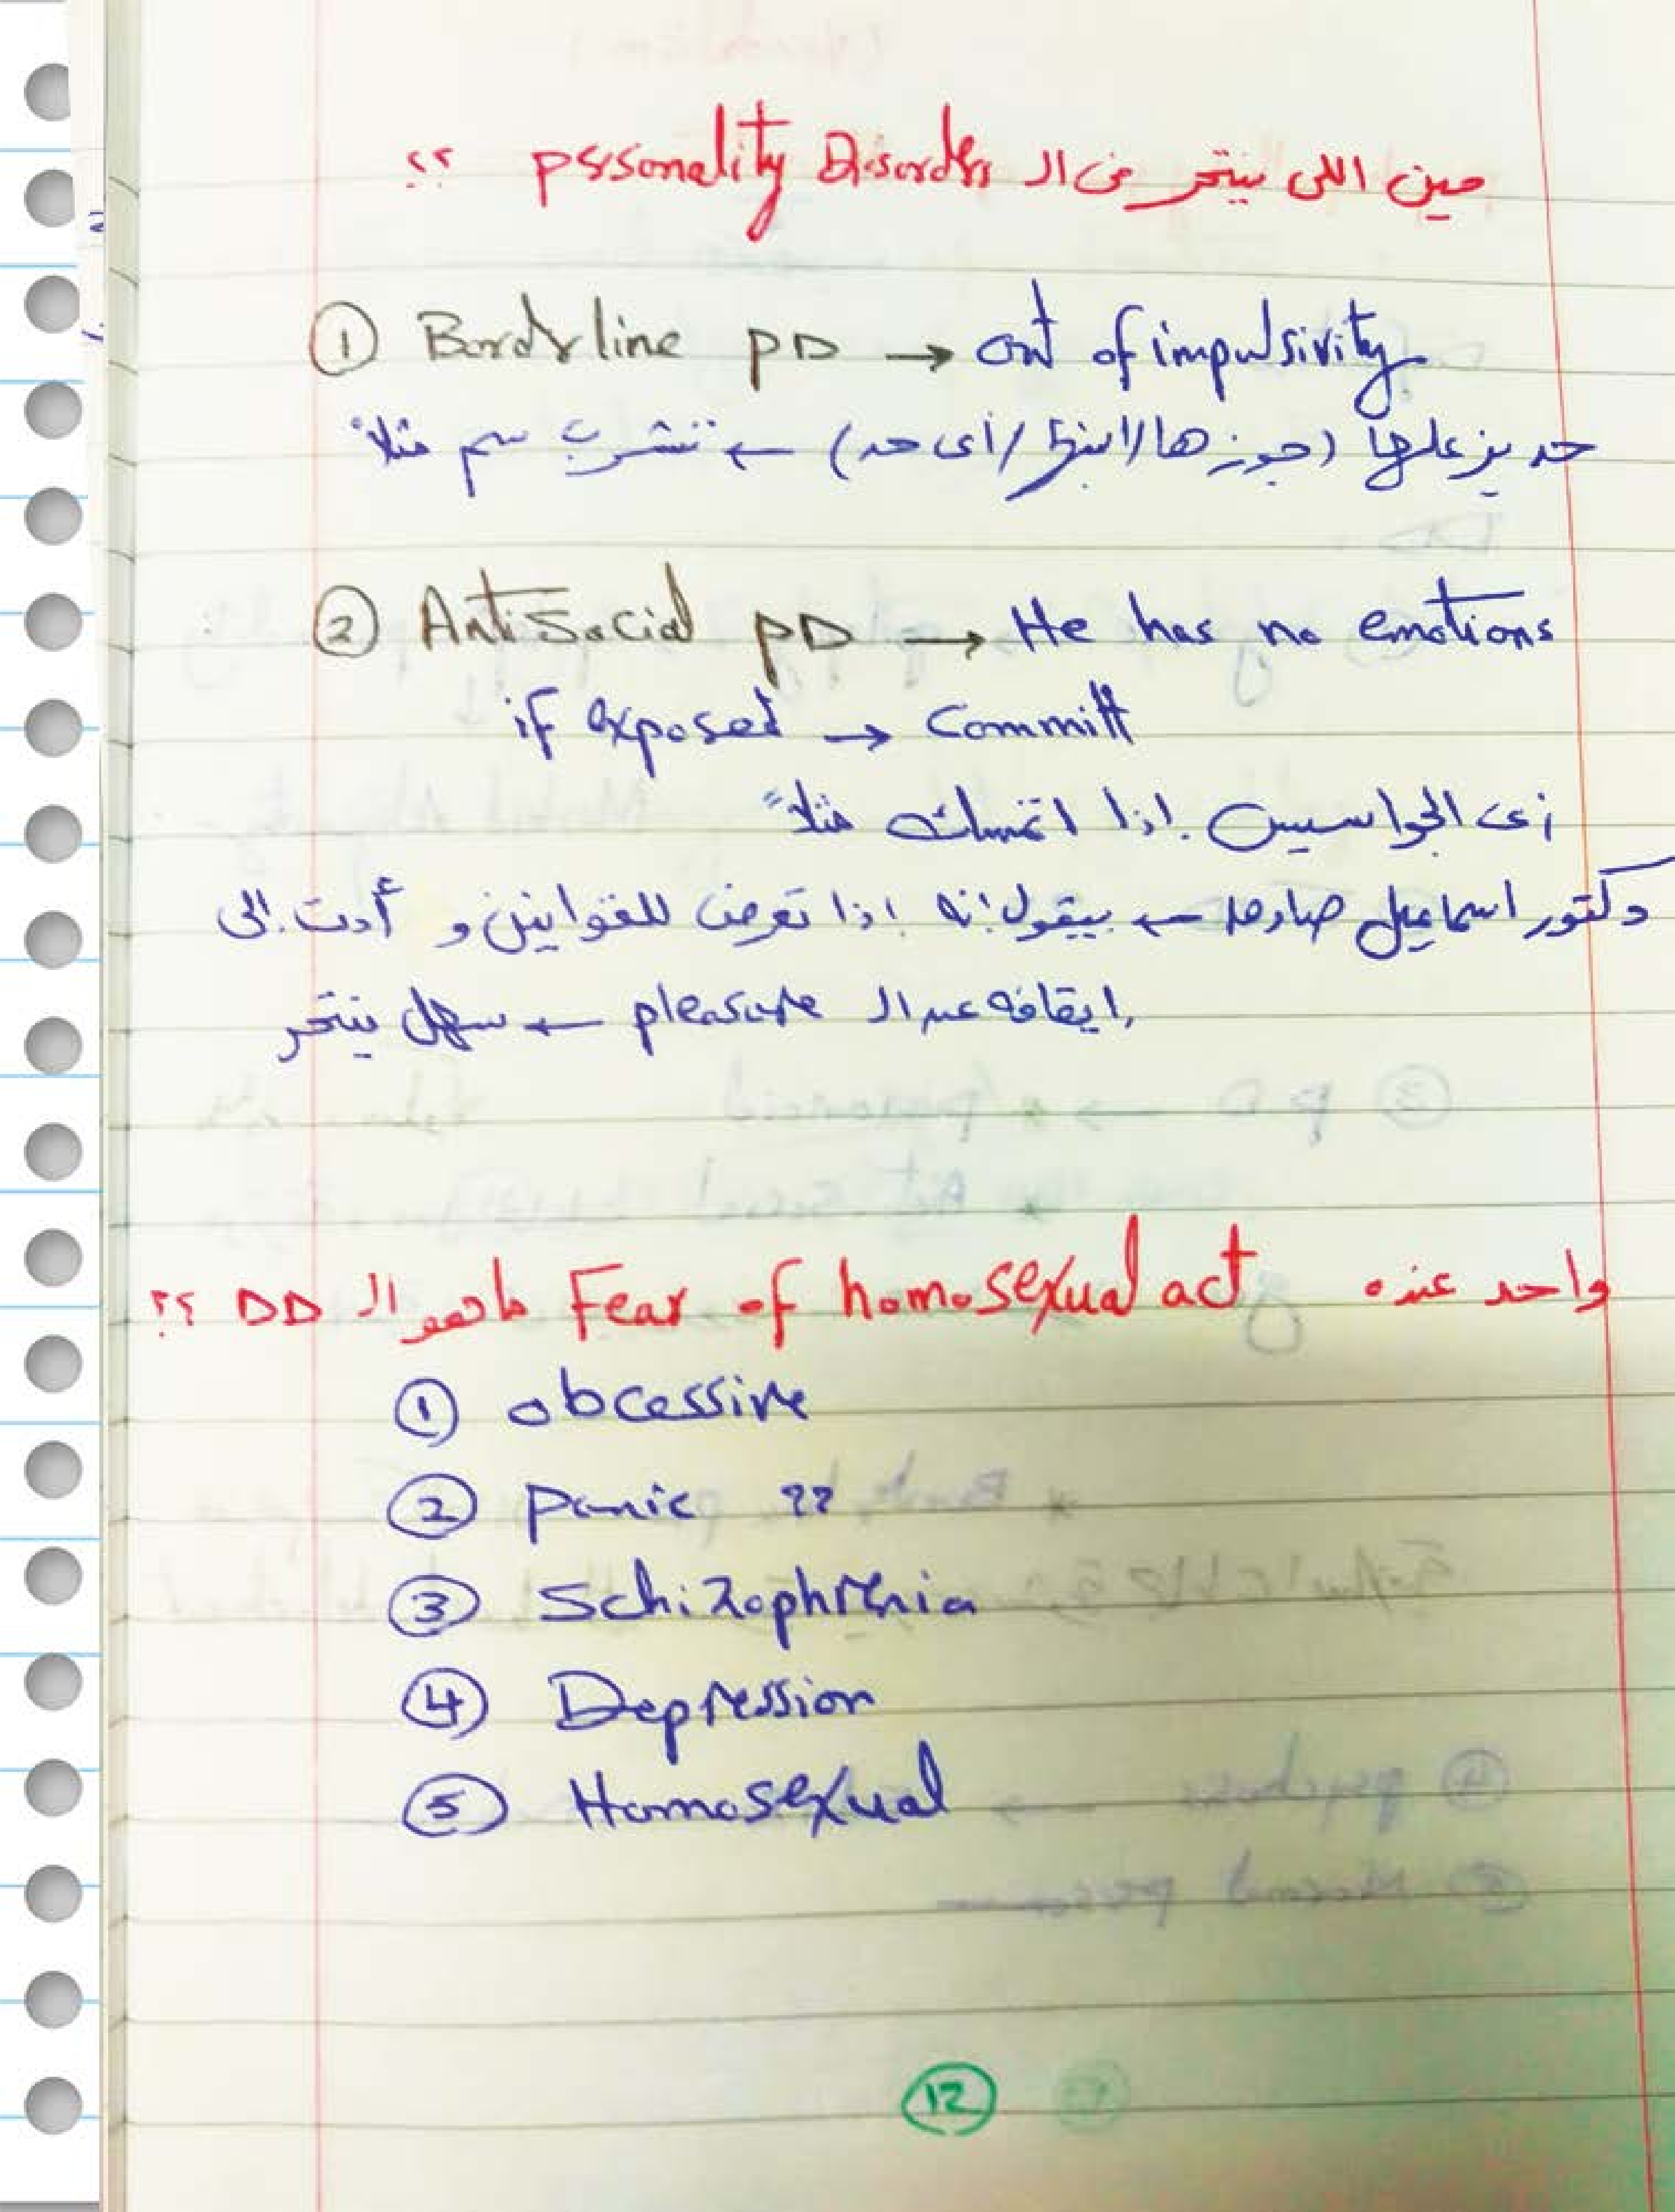 مين اللى بينتحر من الـ personality Disorders ؟؟
① Borderline PD → out of impulsivity
حد يزعلها (جوزها/ابنها/أى حد) ← تشرب سم مثلاً
② AntiSocial PD → He has no emotions
if exposed → Committ
زى الجواسيس إذا اتمسك مثلاً
دكتور اسماعيل صادق ← بيقول إنه إذا تعرض للقوانين و أدت إلى
إيقافه عن الـ pleasure ← سهل ينتحر
واحد عنده Fear of homosexual act ما هو الـ DD ؟؟
① obcessive
② panic ??
③ Schizophrenia
④ Depression
⑤ Homosexual
12